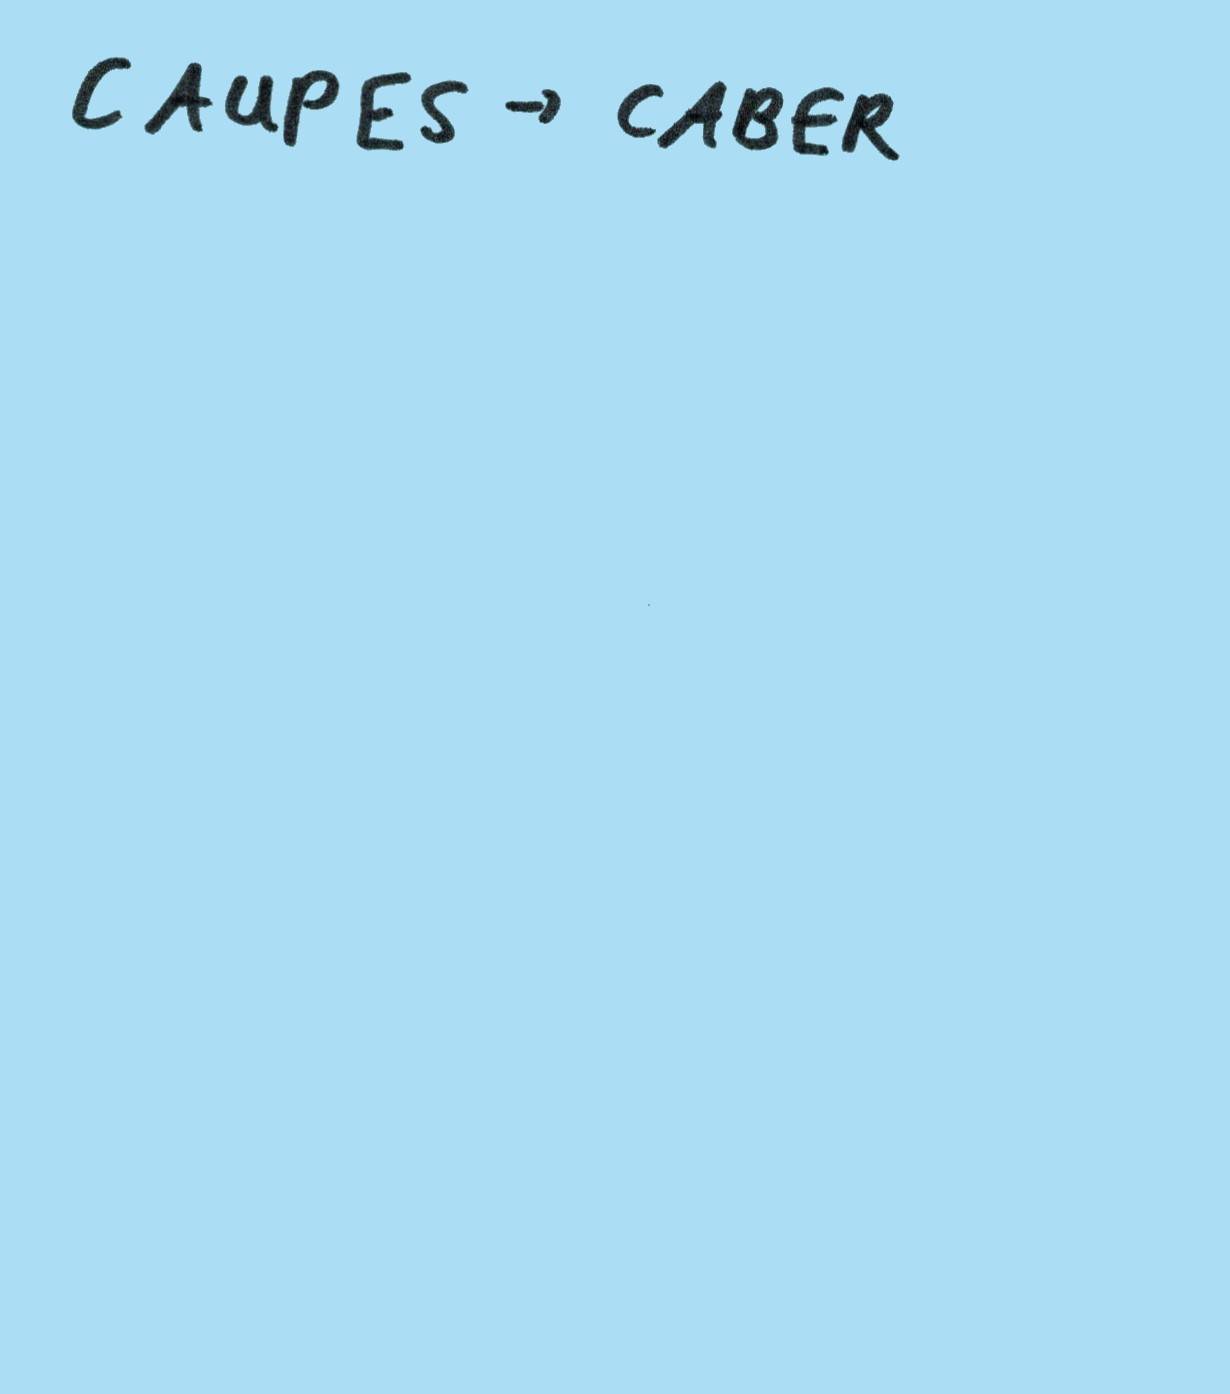 CAUPES → CABER